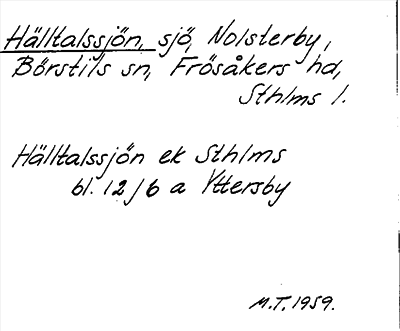 Hälltalssjön, sjö, Nolsterby,
Börstils sn, Frösåkers hd,
Sthlms l.
Hälltalssjön ek Sthlms
bl. 12/6 a Yttersby
M.T. 1959.